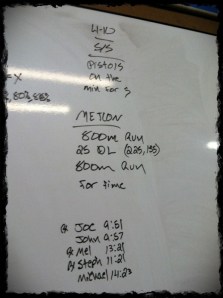 4-10
S/S
Pistols
on the
min for 5
METCON
800m Run
25 DL (225, 155)
800m Run
For time
Joe 9:51
John 9:57
Mel 13:21
Steph 11:21
Michael 14:23